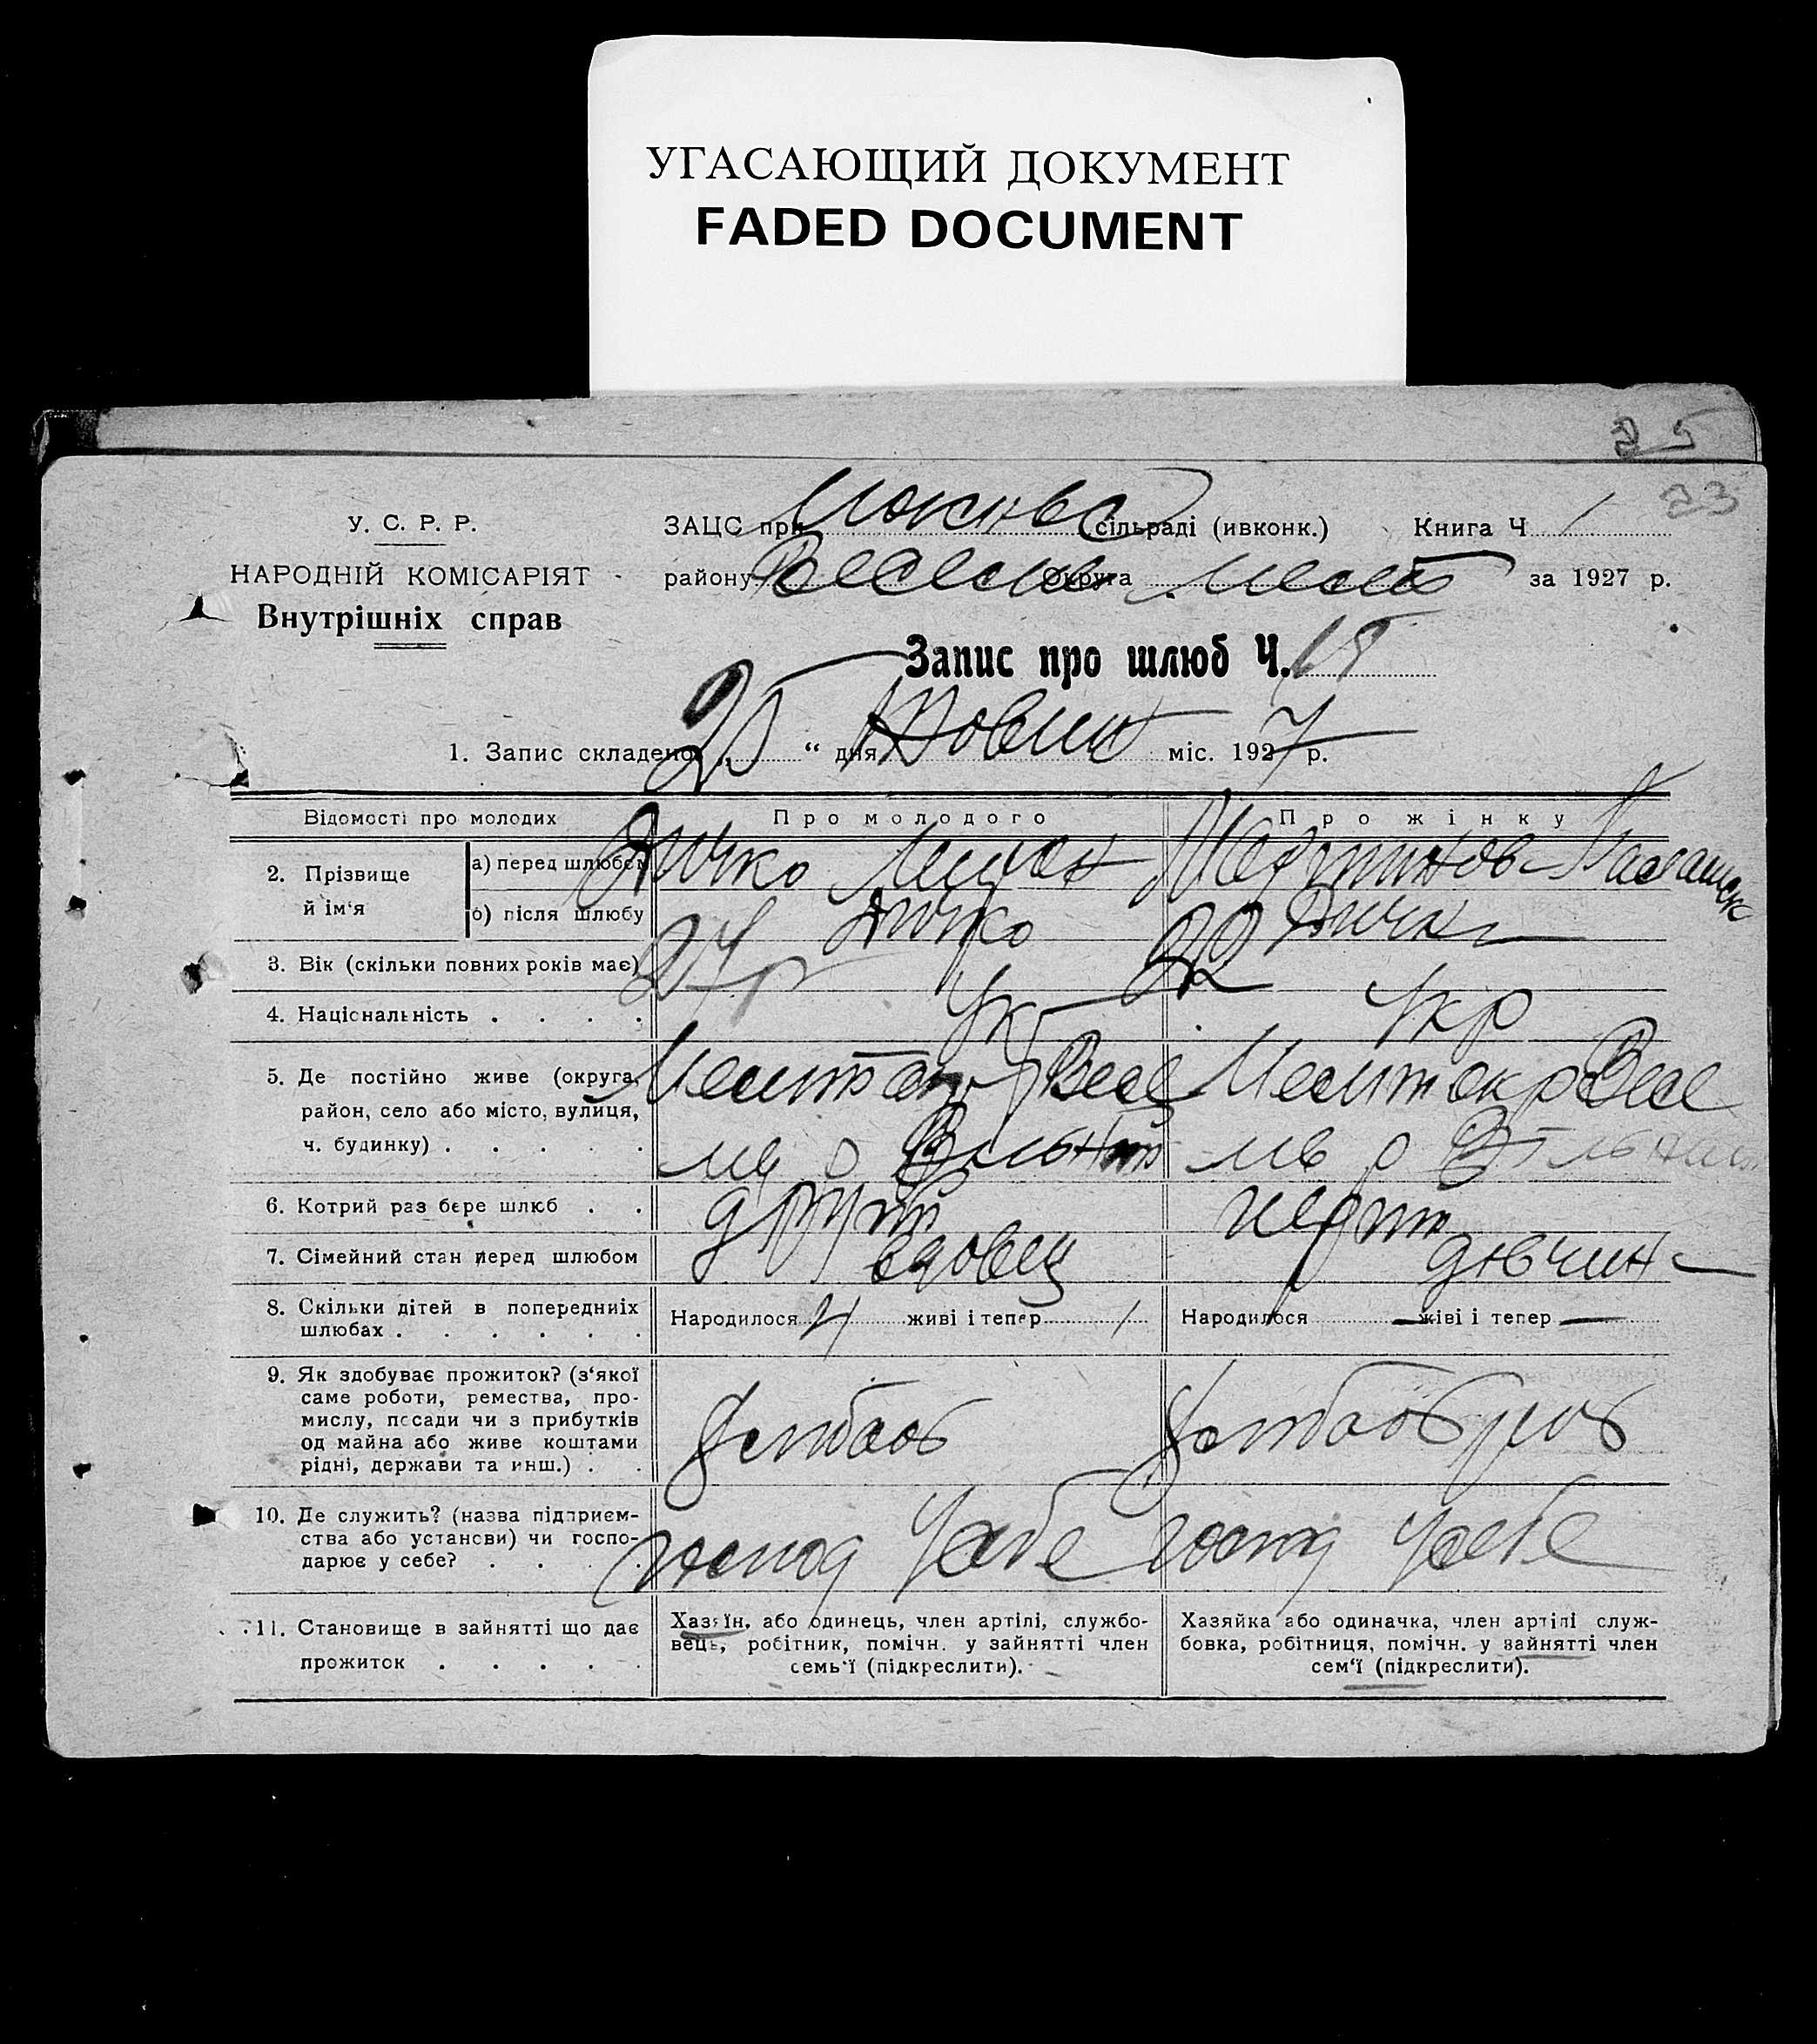 УГАСАЮЩИЙ ДОКУМЕНТ
FADED DOCUMENT
25
23
У. С. Р. Р.
НАРОДНІЙ КОМІСАРІЯТ
Внутрішніх справ
ЗАЦС при сільраді (ивконк.) Книга Ч 1
району Веселів округа Меліт за 1927 р.
Запис про шлюб Ч.
1. Запис складено „25“ дня Жовтн міс. 1927 р.
Відомості про молодих Про молодого Про жінку
2. Прізвище й ім‘я
а) перед шлюбом Дичко
б) після шлюбу Дичко Дичко
3. Вік (скільки повних років має) 27 р 22
4. Національність . . . . Укр Укр
5. Де постійно живе (округа, Меліт окр Весе Меліт окр Весе
район, село або місто, вулиця,
ч. будинку) . . . . .
6. Котрий раз бере шлюб . . другий перший
7. Сімейний стан перед шлюбом вдовец дівчин
8. Скільки дітей в попередниіх Народилося 4 живі і тепер 1 Народилося — живі і тепер —
шлюбах . . . . . .
9. Як здобуває прожиток? (з‘якої
саме роботи, ремества, про-
мислу, посади чи з прибутків
од майна або живе коштами
рідні, держави та инш.) . .
10. Де служить? (назва підприєм-
ства або установи) чи госпо- господ у себе господ у себе
дарює у себе? . . . .
11. Становище в зайнятті що дає
прожиток . . . . .
Хазяїн, або одинець, член артілі, службо-
вець, робітник, помічн. у зайнятті член
семь‘ї (підкреслити).
Хазяйка або одиначка, член артілі служ-
бовка, робітниця, помічн. у зайнятті член
сем‘ї (підкреслити).